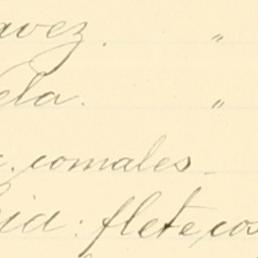 avez. "
ela. "
. comales
cia: fletecos